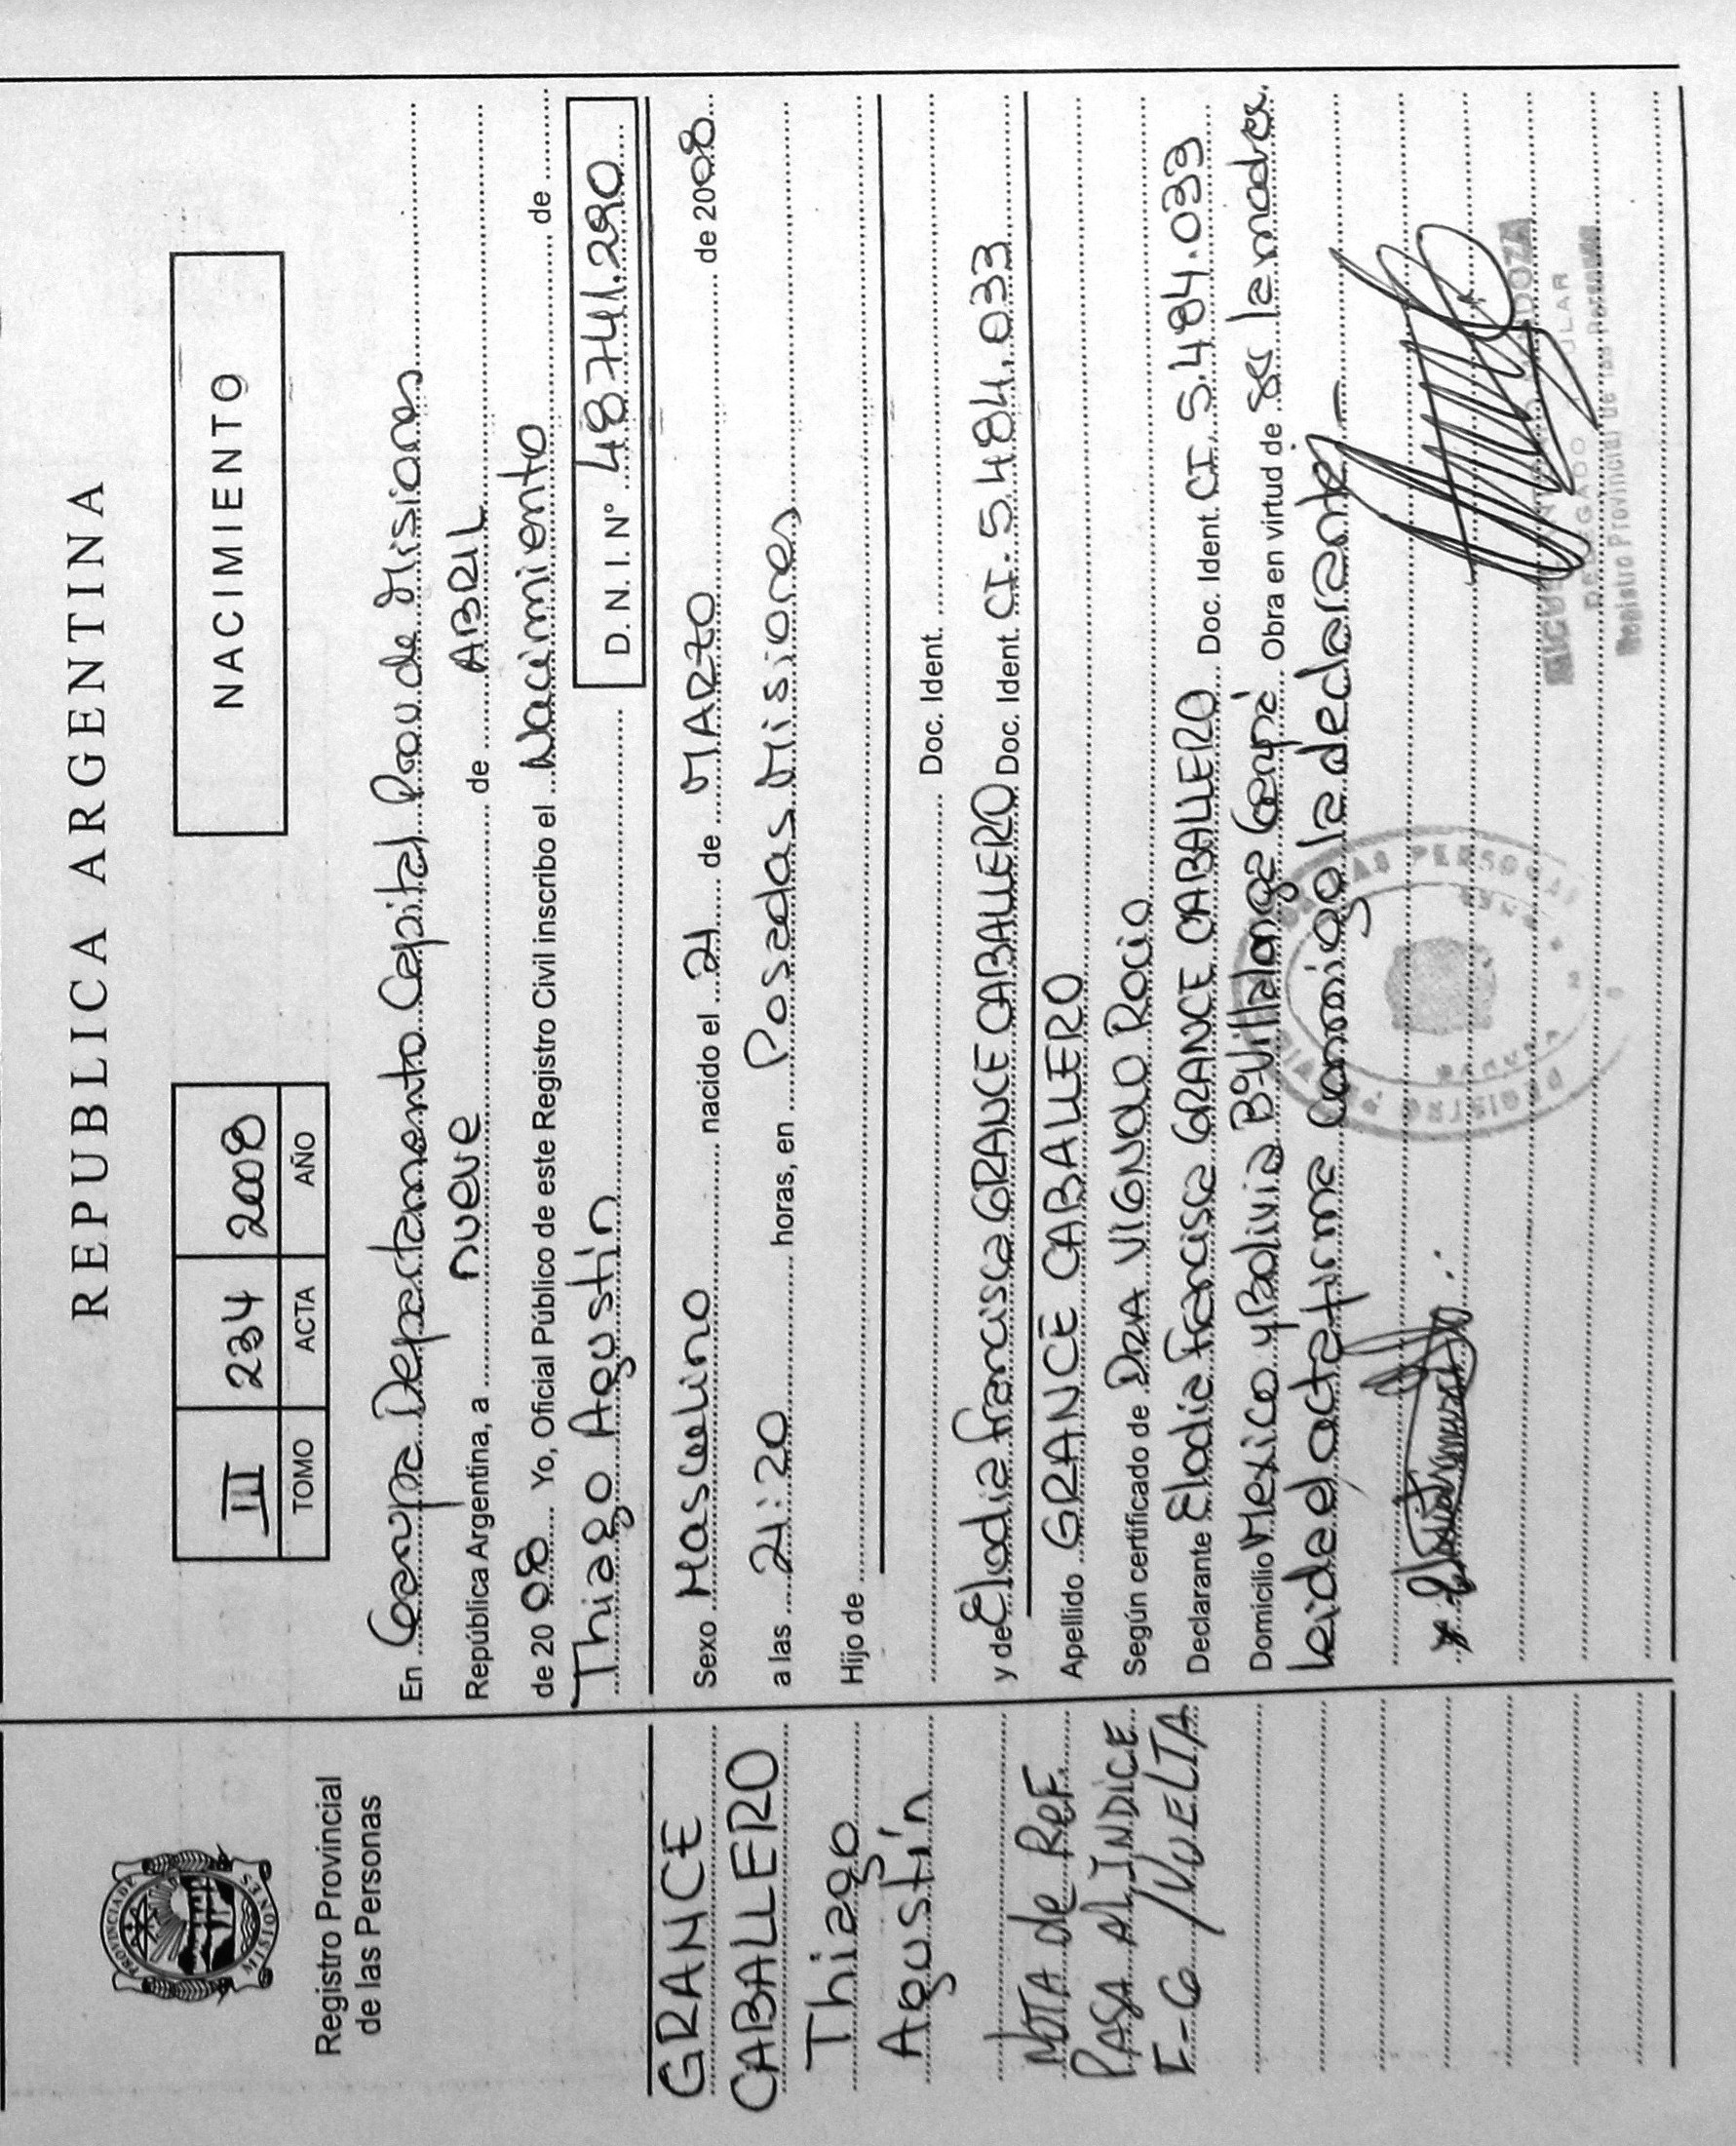 REPUBLICA ARGENTINA
III 234 2008
TOMO ACTA AÑO
NACIMIENTO
PROVINCIA DE
MISIONES
Registro Provincial
de las Personas
GRANCE
CABALLERO
Thiago
Agustín
NOTA de Ref.
PASA Al ÍNDICE
F-6 /VUELTA
En Garupa Departamento Capital Prov de Misiones
República Argentina, a nueve de ABRIL
de 2008 Yo, Oficial Público de este Registro Civil inscribo el Nacimiento de
Thiago Agustín
D. N. I. N° 48741.290
Sexo Masculino nacido el 21 de MARZO de 2008
a las 21:20 horas, en Posadas Misiones
Hijo de
Doc. Ident.
y de Elodia francisca GRANCE CABALLERO Doc. Ident. CI. 5.484.033
Apellido GRANCE CABALLERO
Según certificado de DRA VIGNOLO ROCIO
Declarante Elodia francisca GRANCE CABALLERO Doc. Ident CI. 5.484.033
Domicilio Mexico y Bolivia B° Villalonga Garupá Obra en virtud de ser la madre.
Leida el acta firma conmigo la declarante.-
REGISTRO PROVINCIAL DE LAS PERSONAS
GARUPA
DELEGADO TITULAR
Registro Provincial de las Personas